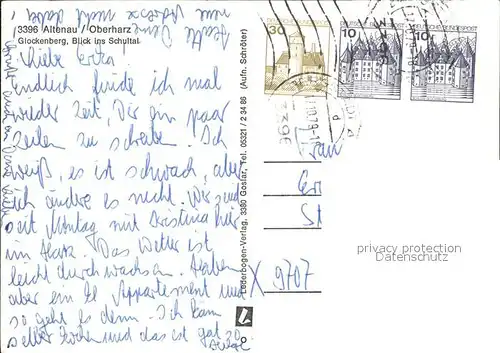 3396 Altenau / Oberharz
Glockenberg, Blick ins Schultal
hatte Deine
Adresse
nicht dabei
Liebe Erta!
endlich finde ich mal
wieder Zeit, Dir ein paar
Zeilen zu schreiben. Ich
weiß, es ist schwach, aber
ich ändere es nicht. Wir sind
seit Montag mit Kristina hier
im Harz. Das Wetter ist
leicht durchwachsen. Haben
aber ein Appartement und
so geht es denn. Ich kann
selber kochen und das ist gut so
Lederbogen-Verlag, 3380 Goslar, Tel. 05321 / 2 34 86 (Aufn. Schröter)
30
10
10
3396
Frau
Er
St
X 9707
privacy protection
Datenschutz